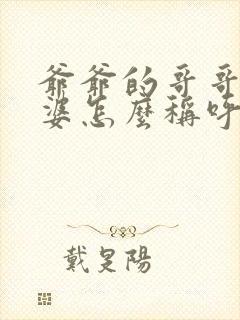 爺爺的哥哥
婆怎麼稱呼
戴是陽